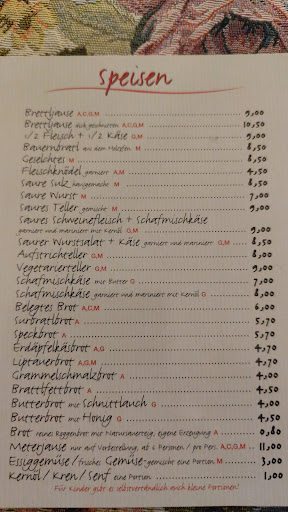 Speisen
Brettljause A,C,G,M 9,00
Brettljause dick geschnitten A,C,G,M 10,50
1/2 Fleisch + 1/2 Käse G,M 9,00
Bauernbratl aus dem Holzofen M 8,50
Geselchtes M 8,50
Fleischknödel garniert A,M 4,50
Saure Sulz hausgemacht M 8,50
Saure Wurst M 7,00
Saures Teller gemischt M 9,00
Saures Schweinefleisch + Schafmischkäse
garniert und mariniert mit Kernöl G,M 9,00
Saurer Wurstsalat + Käse garniert und mariniert G,M 8,50
Aufstrichteller G,M 8,00
Vegetarierteller G,M 9,00
Schafmischkäse mit Butter G 7,00
Schafmischkäse garniert und mariniert mit Kernöl G 8,00
Belegtes Brot A,C,M 6,00
Surbratlbrot A 5,70
Speckbrot A 5,70
Erdäpfelkäsbrot A,G 4,70
Liptauerbrot A,G,M 4,70
Grammelschmalzbrot A 4,00
Bratlfettbrot A 4,50
Butterbrot mit Schnittlauch G 4,00
Butterbrot mit Honig G 4,50
Brot reines Roggenbrot mit Natursauerteig, eigene Erzeugung A 0,80
Meterjause nur auf Vorbestellung, ab 6 Personen / pro Pers. A,C,G,M 11,00
Essiggemüse / frisches Gemüse gemischt eine Portion M 3,00
Kernöl / Kren / Senf eine Portion 1,00
Für Kinder gibt es selbstverständlich auch kleine Portionen!